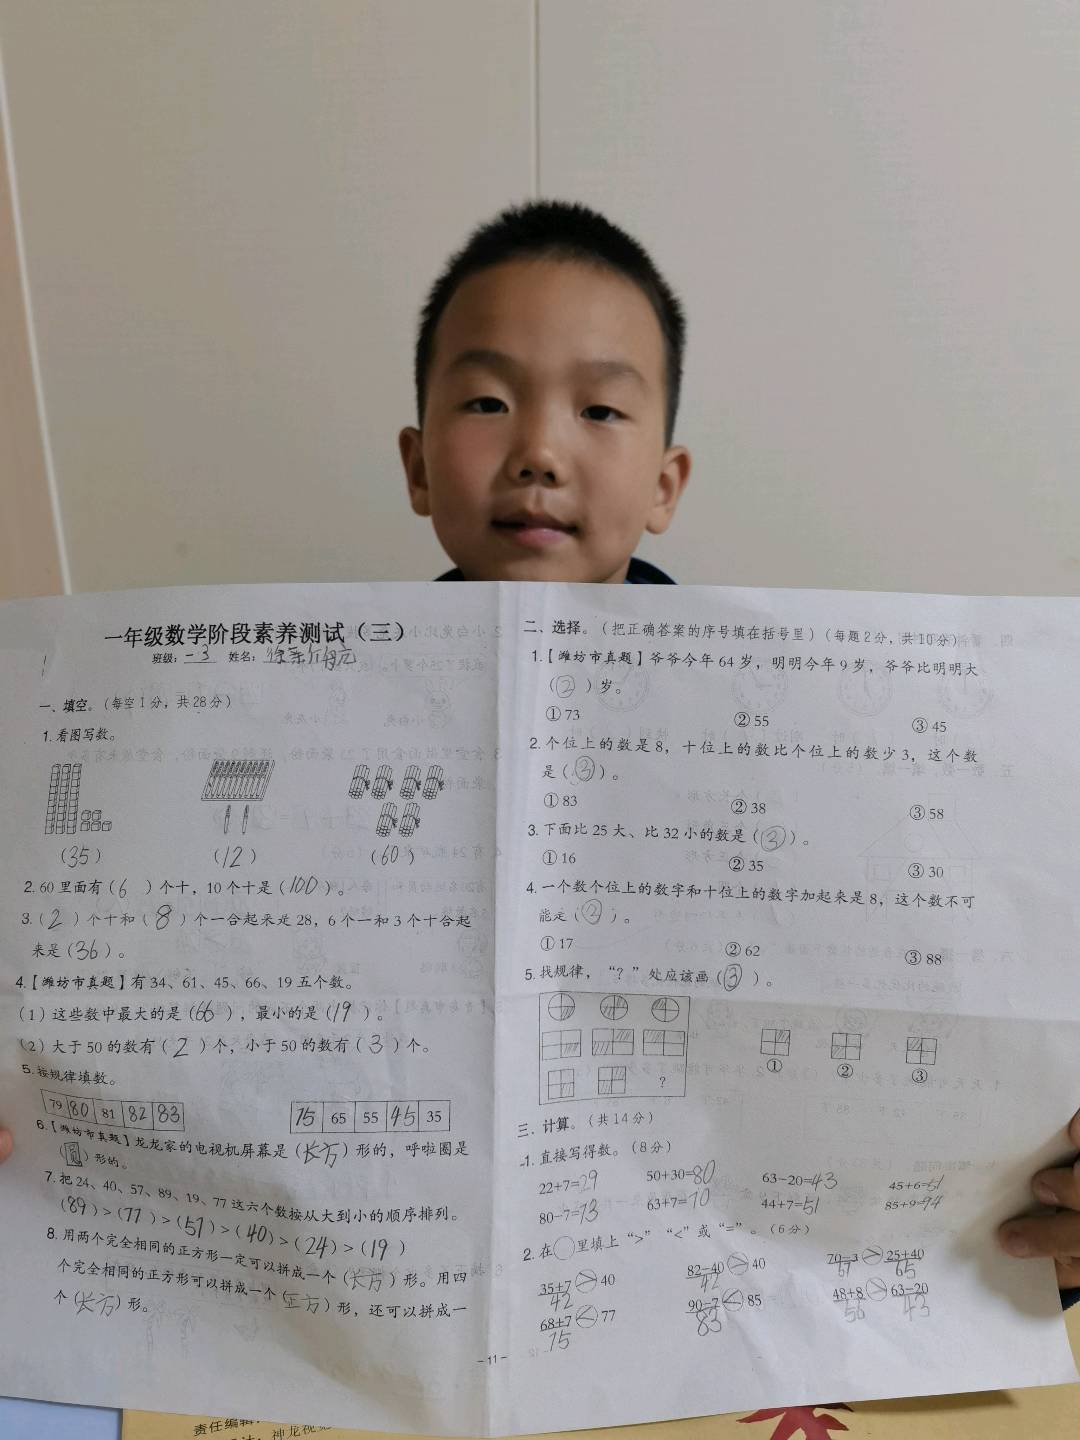 一年级数学阶段素养测试（三）
班级：一.3 姓名：
一、填空。（每空1分，共28分）
1.看图写数。
（35） （12） （60）
2. 60里面有（6）个十，10个十是（100）。
3.（2）个十和（8）个一合起来是28，6个一和3个十合起
来是（36）。
4.【潍坊市真题】有34、61、45、66、19五个数。
（1）这些数中最大的是（66），最小的是（19）。
（2）大于50的数有（2）个，小于50的数有（3）个。
5.按规律填数。
79 80 81 82 83 75 65 55 45 35
6.【潍坊市真题】龙龙家的电视机屏幕是（长方）形的，呼啦圈是
（圆）形的。
7.把24、40、57、89、19、77这六个数按从大到小的顺序排列。
（89）>（77）>（57）>（40）>（24）>（19）
8.用两个完全相同的正方形一定可以拼成一个（长方）形。用四
个完全相同的正方形可以拼成一个（正方）形，还可以拼成一
个（长方）形。
二、选择。（把正确答案的序号填在括号里）（每题2分，共10分）
1.【潍坊市真题】爷爷今年64岁，明明今年9岁，爷爷比明明大
（②）岁。
①73 ②55 ③45
2.个位上的数是8，十位上的数比个位上的数少3，这个数
是（③）。
①83 ②38 ③58
3.下面比25大、比32小的数是（③）。
①16 ②35 ③30
4.一个数个位上的数字和十位上的数字加起来是8，这个数不可
能是（③）。
①17 ②62 ③88
5.找规律，“？”处应该画（③）。
?
① ② ③
三、计算。（共14分）
1.直接写得数。（8分）
22+7=29 50+30=80 63-20=43 45+6=51
80-7=73 63+7=70 44+7=51 85+9=94
2.在○里填上“>”“<”或“=”。（6分）
35+7>40 82-40>40 70-3>25+40
42 42 67 65
68+7<77 90-7<85 48+8>63-20
75 83 56 43
-11-
责任编辑：